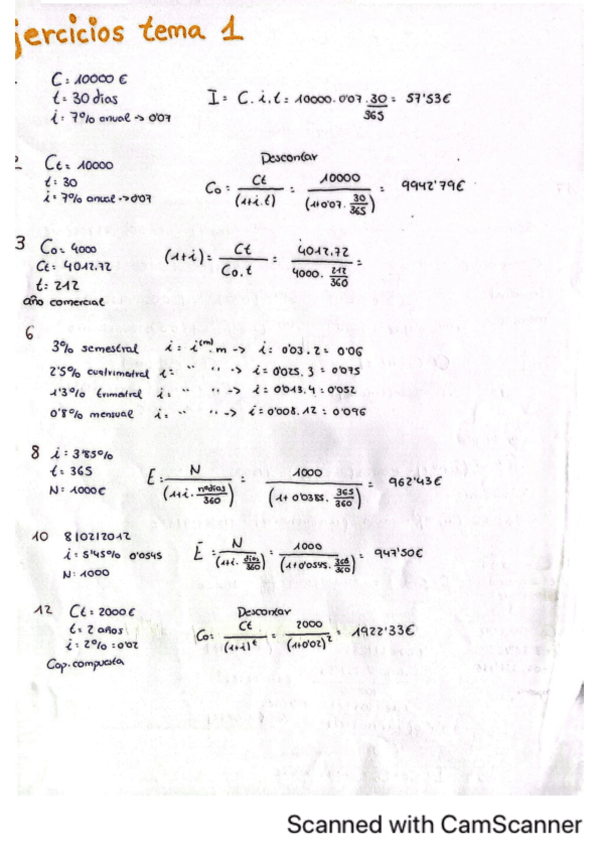 jercicios tema 1
C = 10000 €
t = 30 dias
i = 7% anual -> 0'07
I = C. i. t = 10000. 0'07. 30/365 = 57'53€
2 Ct = 10000
t = 30
i = 7% anual -> 0'07
Descontar
Co = Ct/(1+i.t) = 10000/(1+0'07. 30/365) = 9942'79€
3 Co = 4000
Ct = 4012.72
t = 212
año comercial
(1+i) = Ct/Co.t = 4012.72/4000. 212/360 =
6
3% semestral i = i^(m).m -> i = 0'03. 2 = 0'06
2'5% cuatrimestral i = " " -> i = 0'025. 3 = 0'075
1'3% trimestral i = " " -> i = 0'013. 4 = 0'052
0'8% mensual i = " " -> i = 0'008. 12 = 0'096
8 i = 3'85%
t = 365
N = 1000€
E = N/(1+i. nºdias/360) = 1000/(1+0'0385. 365/360) = 962'43€
10 8/02/2012
i = 5'45% 0'0545
N = 1000
E = N/(1+i. dias/360) = 1000/(1+0'0545. /360) = 947'50€
12 Ct = 2000€
t = 2 años
i = 2% = 0'02
Cap. compuesta
Descontar
Co = Ct/(1+i)^t = 2000/(1+0'02)^2 = 1922'33€
Scanned with CamScanner